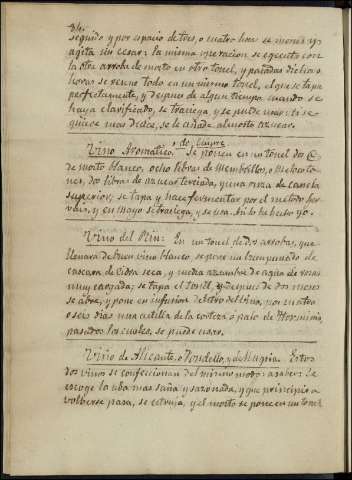 seguido y por espacio de tres, o cuatro horas se menea y
agita sin cesar: la misma operacion se egecuta con
la otra arroba de mosto en otro tonel, y pasadas dichas
horas se reune todo en un mismo tonel, el que se tapa
perfectamente, y despues de algun tiempo cuando se
haya clarificado, se trasiega y se puede usar: si se
quiere mas dulce, se le añade al mosto azucar.
Vino Aromatico. Se ponen en un tonel dos @
de mosto blanco, ocho libras de Membrillos, o Melocoto-
nes, dos libras de azucar terciada, y una onza de canela
superior; se tapa y hace fermentar por el metodo
y en mayo se trasiega, y se usa. Asi lo he hecho yo.
Vino del Rin: En un tonel de dos arrobas, que
llenara de buen vino blanco se pone un
cascara de Cidra seca, y media azumbre de agua de rosas
muy cargada; se tapa el tonel, y despues de dos meses
se abre, y pone en infusion dentro del vino, por cuatro
o seis dias una astilla de la corteza o palo de
pasados los cuales, se puede usar.
Vino de Alicante, o Fondello, y de Alaquia. Estos
dos vinos se confeccionan del mismo modo: a saber: Se
escoge la uba mas sana y sazonada, y que principie a
volberse pasa, se estruja, y el mosto se pone en un tonel